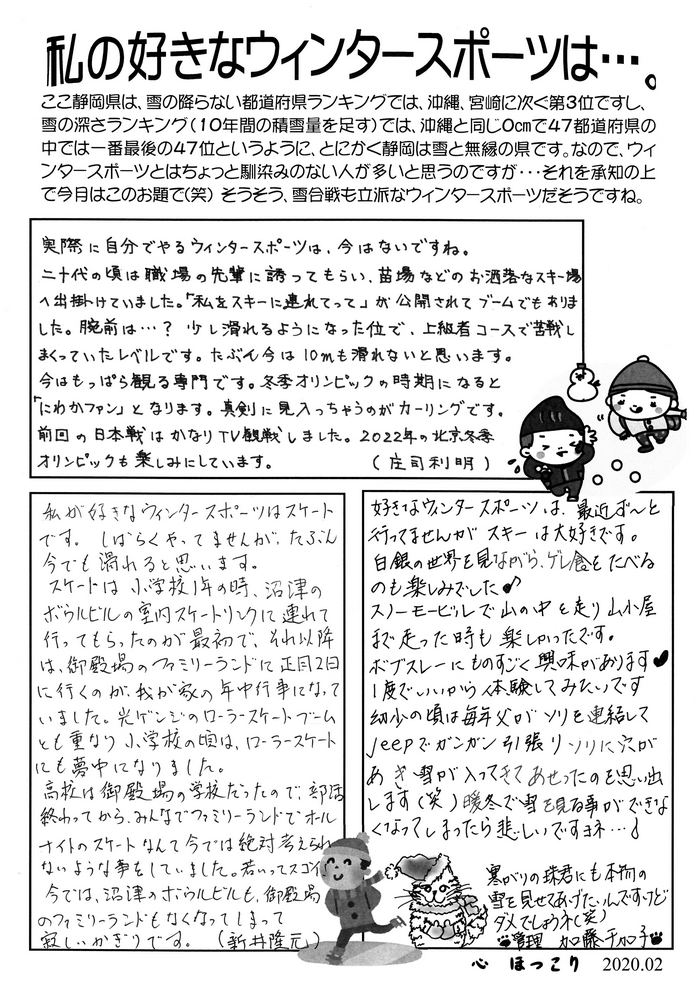 私の好きなウィンタースポーツは…。
ここ静岡県は、雪の降らない都道府県ランキングでは、沖縄、宮崎に次ぐ第3位ですし、
雪の深さランキング(10年間の積雪量を足す)では、沖縄と同じ0cmで47都道府県の
中では一番最後の47位というように、とにかく静岡は雪と無縁の県です。なので、ウィ
ンタースポーツとはちょっと馴染みのない人が多いと思うのですが･･･それを承知の上
で今月はこのお題で(笑) そうそう、雪合戦も立派なウィンタースポーツだそうですね。
実際に自分でやるウィンタースポーツは、今はないですね。
二十代の頃は職場の先輩に誘ってもらい、苗場などのお洒落なスキー場
へ出掛けていました。「私をスキーに連れてって」が公開されてブームでもありま
した。腕前は…？ 少し滑れるようになった位で、上級者コースで苦戦し
まくっていたレベルです。たぶん今は10mも滑れないと思います。
今はもっぱら観る専門です。冬季オリンピックの時期になると
「にわかファン」となります。真剣に見入っちゃうのがカーリングです。
前回の日本戦はかなりTV観戦しました。2022年の北京冬季
オリンピックも楽しみにしています。 (庄司利明)
私が好きなウィンタースポーツはスケート
です。しばらくやってませんが、たぶん
今でも滑れると思います。
スケートは小学校1年の時、沼津の
ボウルビルの室内スケートリンクに連れて
行ってもらったのが最初で、それ以降
は、御殿場のファミリーランドに正月2日
に行くのが我が家の年中行事になって
いました。光ゲンジのローラースケートブーム
とも重なり小学校の頃は、ローラースケート
にも夢中になりました。
高校は御殿場の学校だったので、部活
終わってから、みんなでファミリーランドでオール
ナイトのスケートなんて今では絶対考えられ
ないような事をしていました。若いってスゴイ
今では、沼津のボウルビルも、御殿場
のファミリーランドもなくなってしまって
寂しいかぎりです。 (新井隆元)
好きなウィンタースポーツは、最近ず〜っと
行ってませんがスキーは大好きです。
白銀の世界を見ながら、ゲレ食をたべる
のも楽しみでした♪
スノーモービルで山の中を走り山小屋
まで走った時も楽しかったです。
ボブスレーにものすごく興味があります♥
1度でいいから体験してみたいです
幼少の頃は毎年父がソリを連結して
Jeepでガンガン引張りソリに穴が
あき雪が入ってきてあせったのを思い出
します(笑)暖冬で雪を見る事ができな
くなってしまったら悲しいですヨネ…♪
寒がりの珠君にも本物の
雪を見せてあげたいんですけど
ダメでしょうネ(笑)
管理 加藤千加子
心 ほっこり 2020.02